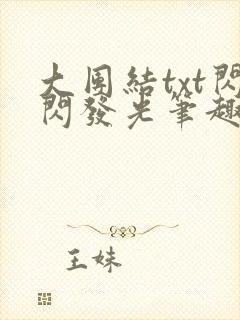 大团結txt閃
閃發光筆趣
王妹